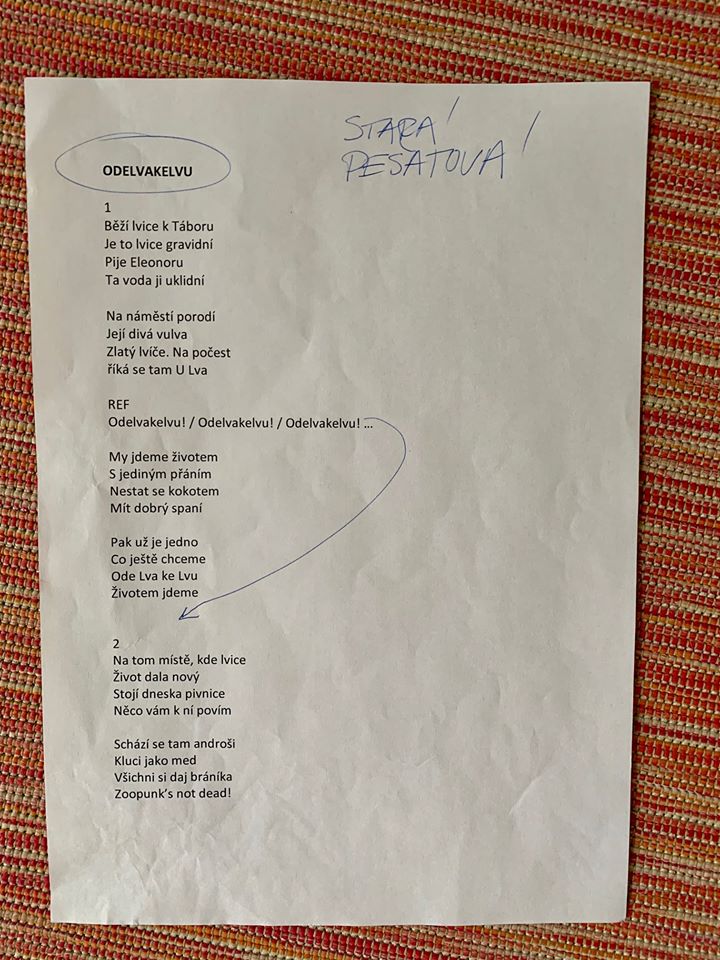 STARÁ!
PESATOVA!
ODELVAKELVU
1
Běží lvice k Táboru
Je to lvice gravidní
Pije Eleonoru
Ta voda ji uklidní
Na náměstí porodí
Její divá vulva
Zlatý lvíče. Na počest
říká se tam U Lva
REF
Odelvakelvu! / Odelvakelvu! / Odelvakelvu! ...
My jdeme životem
S jediným přáním
Nestat se kokotem
Mít dobrý spaní
Pak už je jedno
Co ještě chceme
Ode Lva ke Lvu
Životem jdeme
2
Na tom místě, kde lvice
Život dala nový
Stojí dneska pivnice
Něco vám k ní povím
Schází se tam androši
Kluci jako med
Všichni si daj bráníka
Zoopunk's not dead!